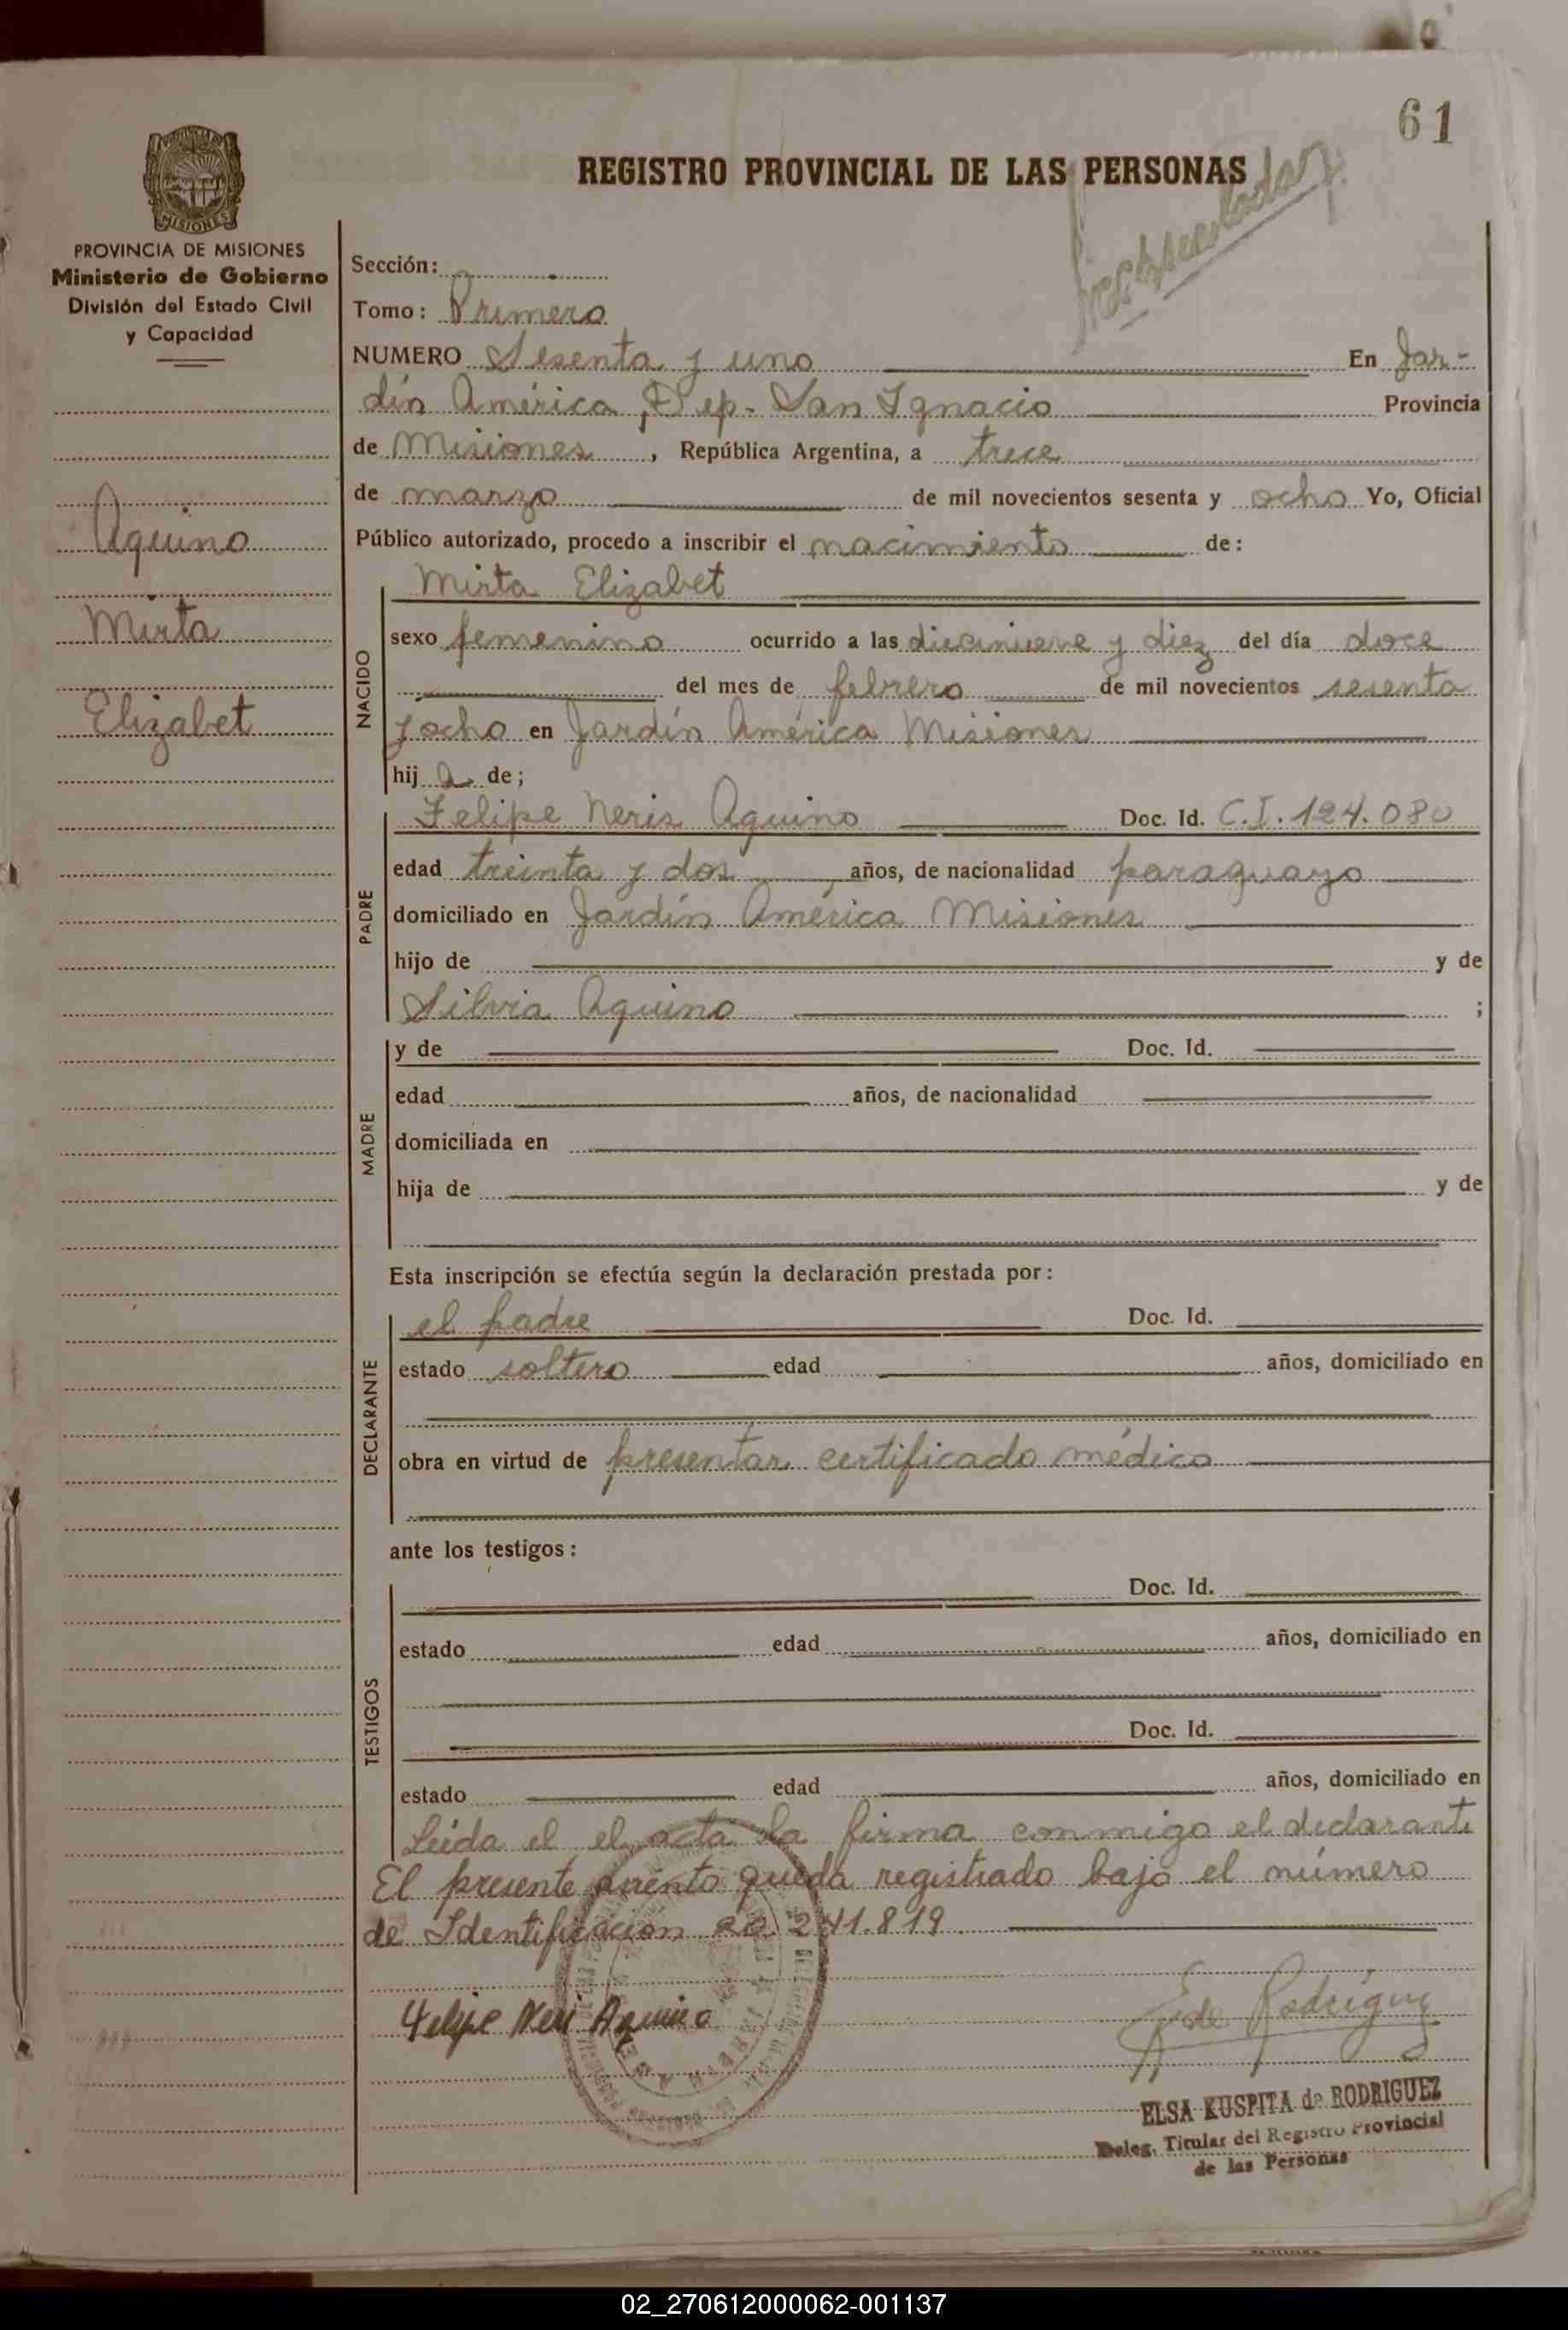 61
REGISTRO PROVINCIAL DE LAS PERSONAS
PROVINCIA DE MISIONES
Ministerio de Gobierno
División del Estado Civil
y Capacidad
Aquino
Mirta
Elizabet
Sección:
Tomo: Primero
NUMERO Sesenta y uno En Jar-
dín América, Dep. San Ignacio Provincia
de Misiones, República Argentina, a trece
de marzo de mil novecientos sesenta y ocho Yo, Oficial
Público autorizado, procedo a inscribir el nacimiento de:
NACIDO
Mirta Elizabet
sexo femenino ocurrido a las diecinueve y diez del día doce
del mes de febrero de mil novecientos sesenta
y ocho en Jardín América Misiones
hij a de;
PADRE
Felipe Neris Aquino Doc. Id. C.I. 124.080
edad treinta y dos años, de nacionalidad paraguayo
domiciliado en Jardín América Misiones
hijo de y de
Silvia Aquino ;
MADRE
y de Doc. Id.
edad años, de nacionalidad
domiciliada en
hija de y de
Esta inscripción se efectúa según la declaración prestada por:
DECLARANTE
el padre Doc. Id.
estado soltero edad años, domiciliado en
obra en virtud de presentar certificado médico
ante los testigos:
TESTIGOS
Doc. Id.
estado edad años, domiciliado en
Doc. Id.
estado edad años, domiciliado en
Leída el el acta la firma conmigo el declarante
El presente asiento queda registrado bajo el número
de Identificación 20.241.819.
Felipe Neri Aquino
E. de Rodriguez
ELSA KUSPITA de RODRIGUEZ
Deleg. Titular del Registro Provincial
de las Personas
02_270612000062-001137